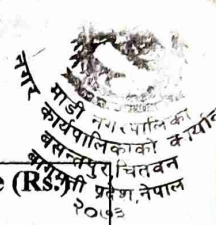 माडी नगरपालिका
नगर कार्यपालिकाको कार्या
बसन्तपुर, चितवन
बागमती प्रदेश, नेपाल
२०७३
e (Rs.)